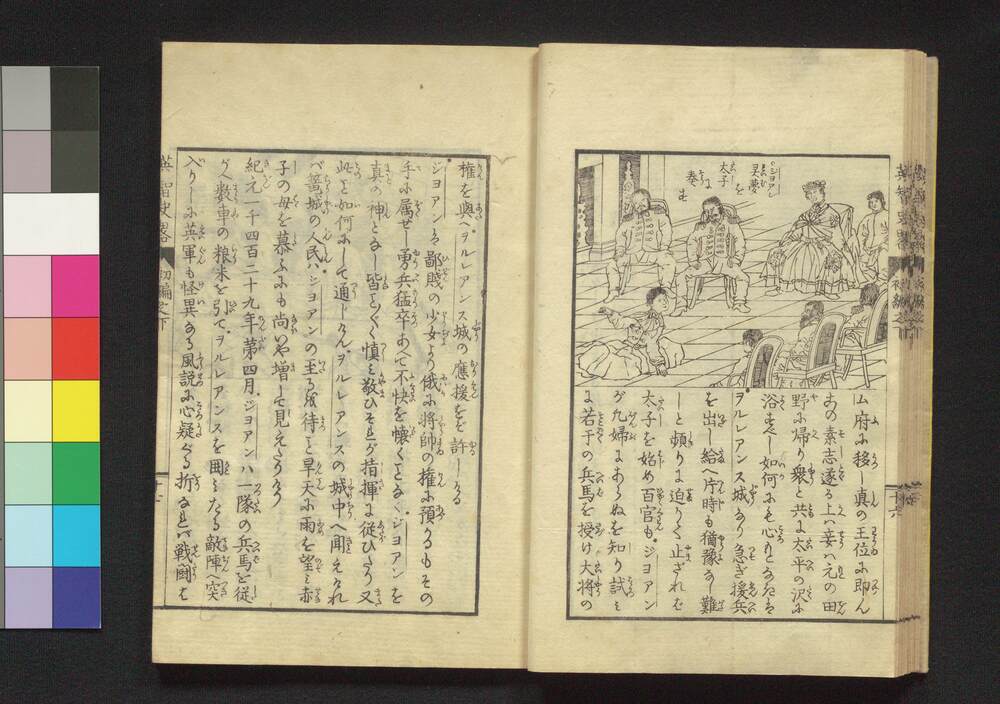 ジヨアン
霊夢
を
太子
に
奏
す
ム府に移し真の王位に即ん
あの素志遂る上ハ妾ハ元の田
野に帰り衆と共に太平の沢に
浴すべし如何にも心もとなきは
ヲルレアンス城なり急ぎ援兵
を出し給へ片時も猶豫なし難
しと頻りに迫りて止ざれば
太子を始め百官もジヨアン
が凡婦にあらぬを知り試ミ
に若干の兵馬を授け大将の
権を與へヲルレアンス城の應援をを許しける
ジヨアンは鄙賤の少女より俄に将帥の権に預かるもその
手に属せし勇兵猛卒あへて不快を懐くことなくジヨアンを
真の神となし皆もくく慎ミ敬ひそれが指揮に従ひたり又
此こと如何にして通じけんヲルレアンスの城中へ聞えけれ
バ篭城の人民ハジヨアンの至るを待こと旱天に雨を望ミ赤
子の母を慕ふにも尚いや増して見えたりけり
紀元一千四百二十九年第四月ジヨアンハ一隊の兵馬を従
がへ数車の粮米を引てヲルレアンスを囲ミたる敵陣へ突
入りしに英軍も怪異なる風説に心疑へる折なれバ戦闘は
英智史略
初編之下
十七
十六